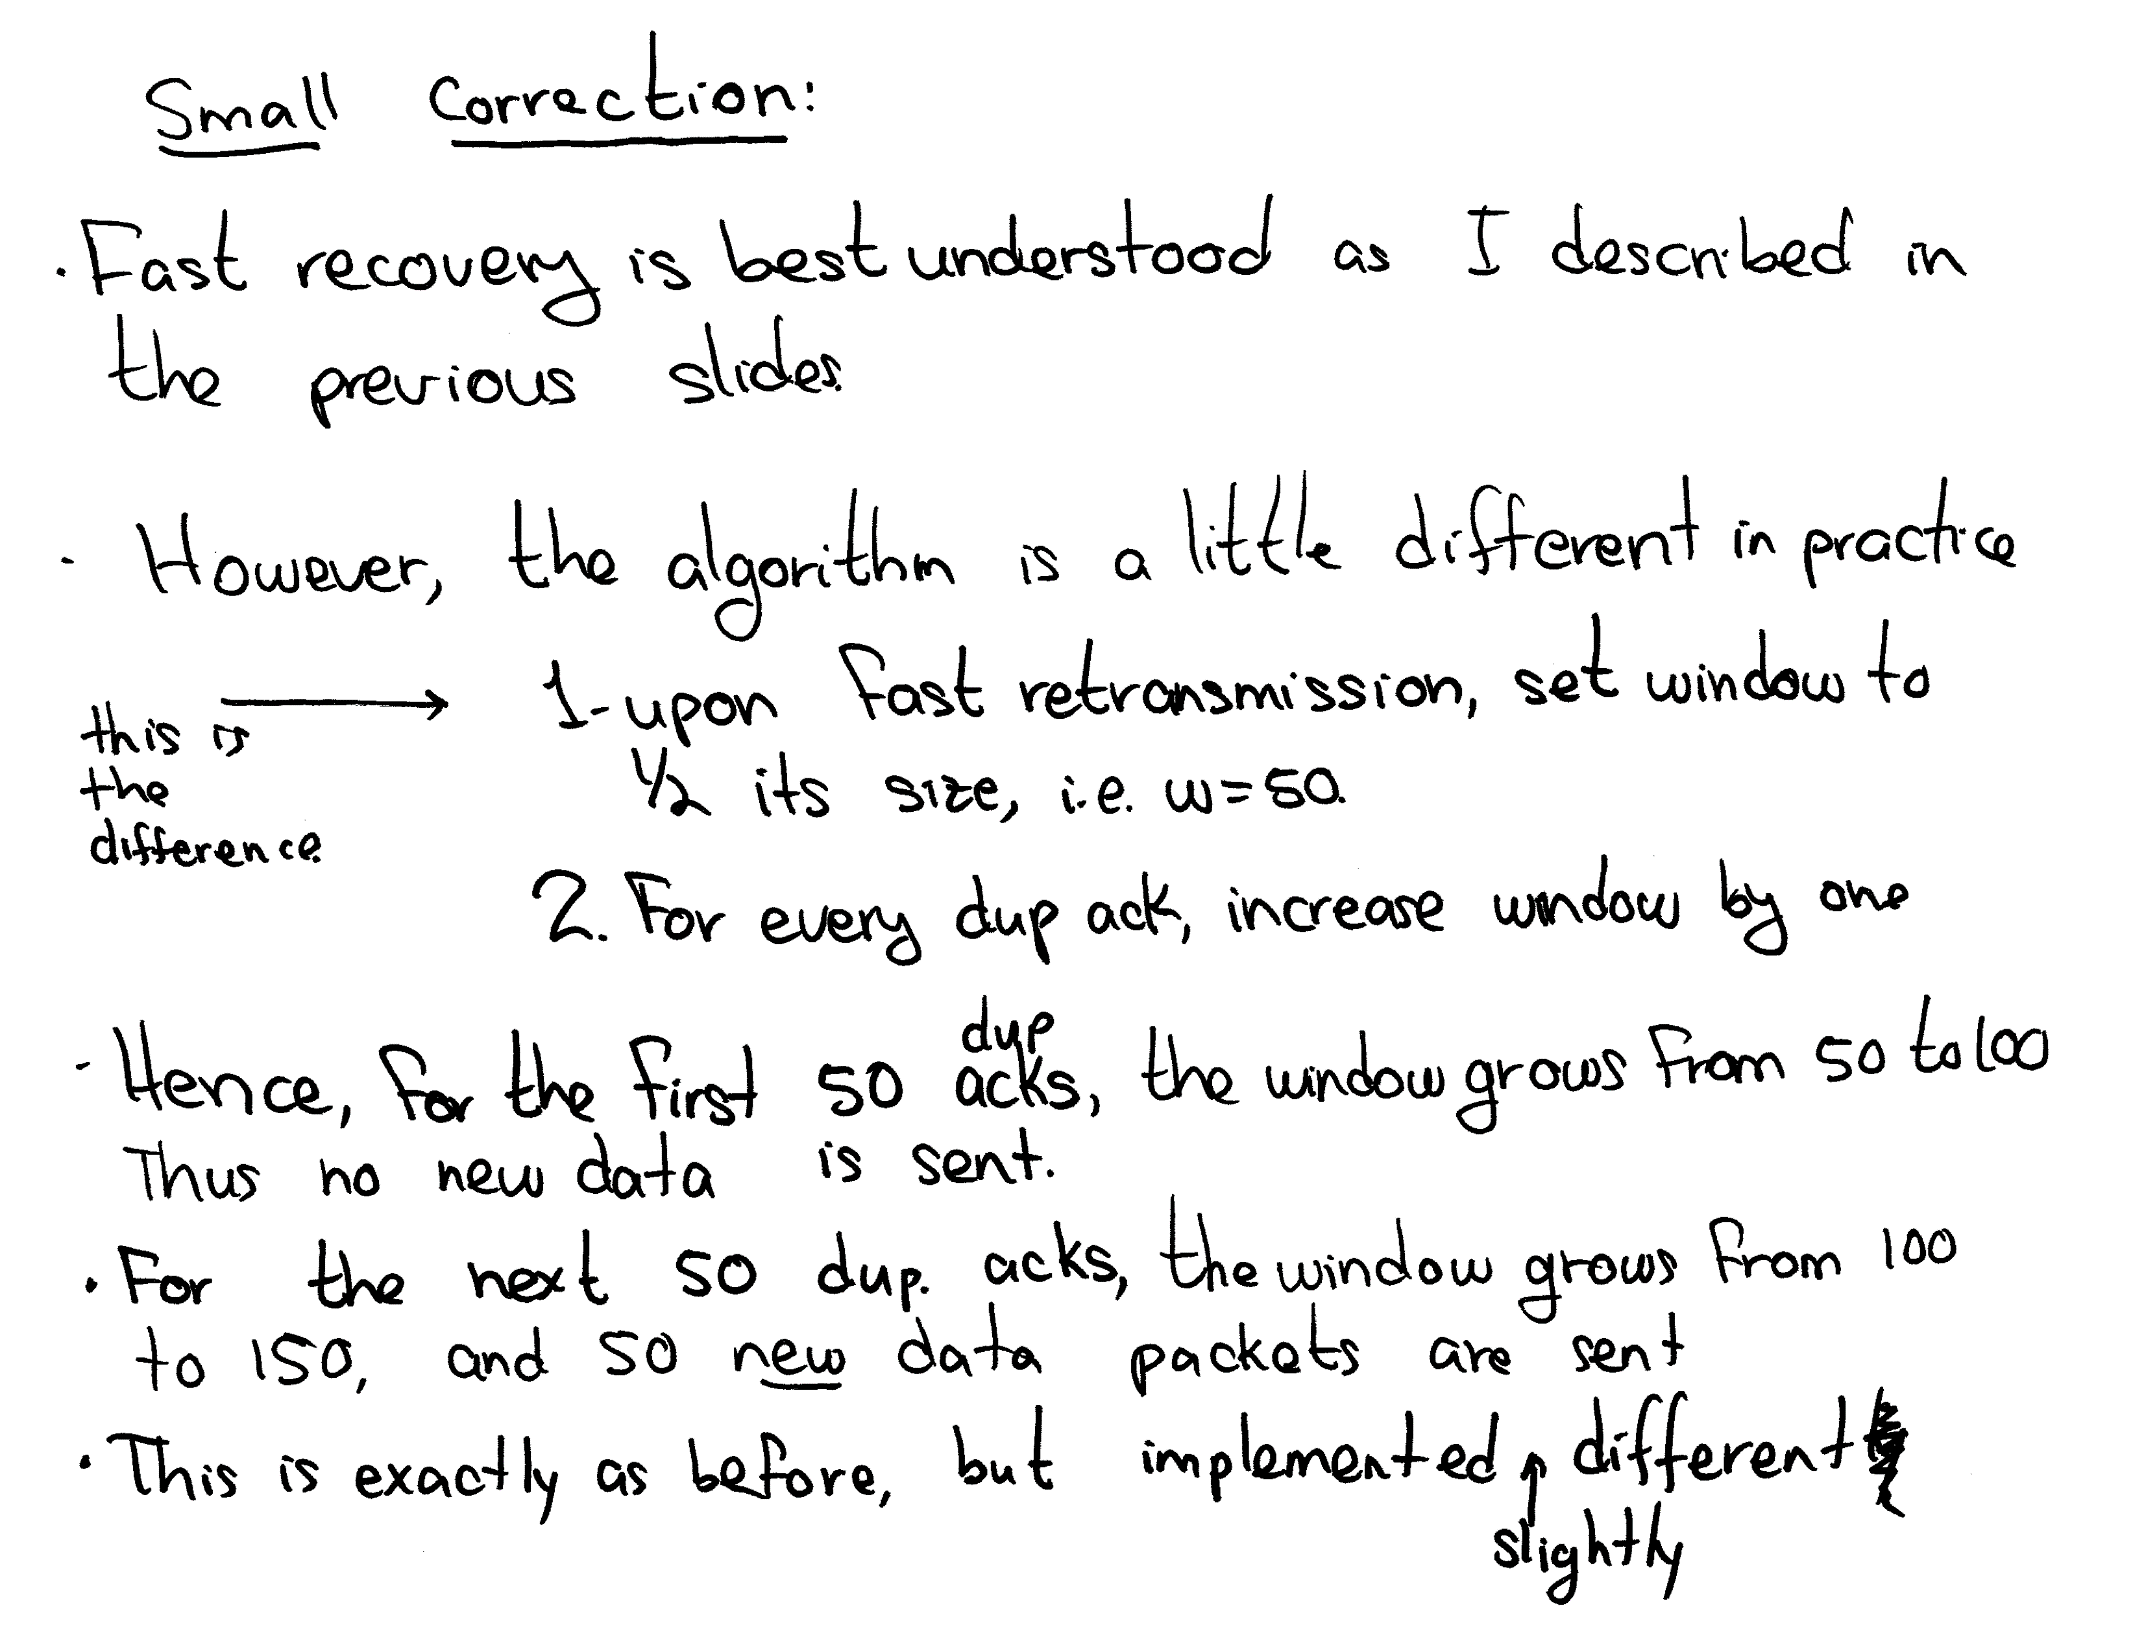 Small Correction:
· Fast recovery is best understood as I described in
the previous slides.
· However, the algorithm is a little different in practice
this is
the
difference.
1- upon fast retransmission, set window to
1/2 its size, i.e. w=50.
2. For every dup ack, increase window by one
- Hence, for the first 50 dup acks, the window grows from 50 to 100
Thus no new data is sent.
· For the next 50 dup. acks, the window grows from 100
to 150, and 50 new data packets are sent
· This is exactly as before, but implemented slightly different